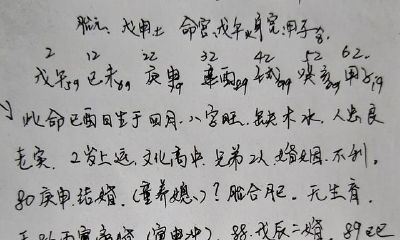 胎元: 戊申土 命宫: 戊午火 身宫: 甲子金
2 12 22 32 42 52 62.
戊午59 己未69 庚申 辛酉 壬戌 癸亥 甲子
此命己酉日生于四月. 八字旺. 缺木水. 人忠良
老实. 2岁上运. 文化高中. 兄弟2人. 婚姻不利.
80庚申结婚. (童养媳)? 胎合肥. 无生育.
86丙寅离婚 (寅申冲). 88戊辰二婚. 89己巳